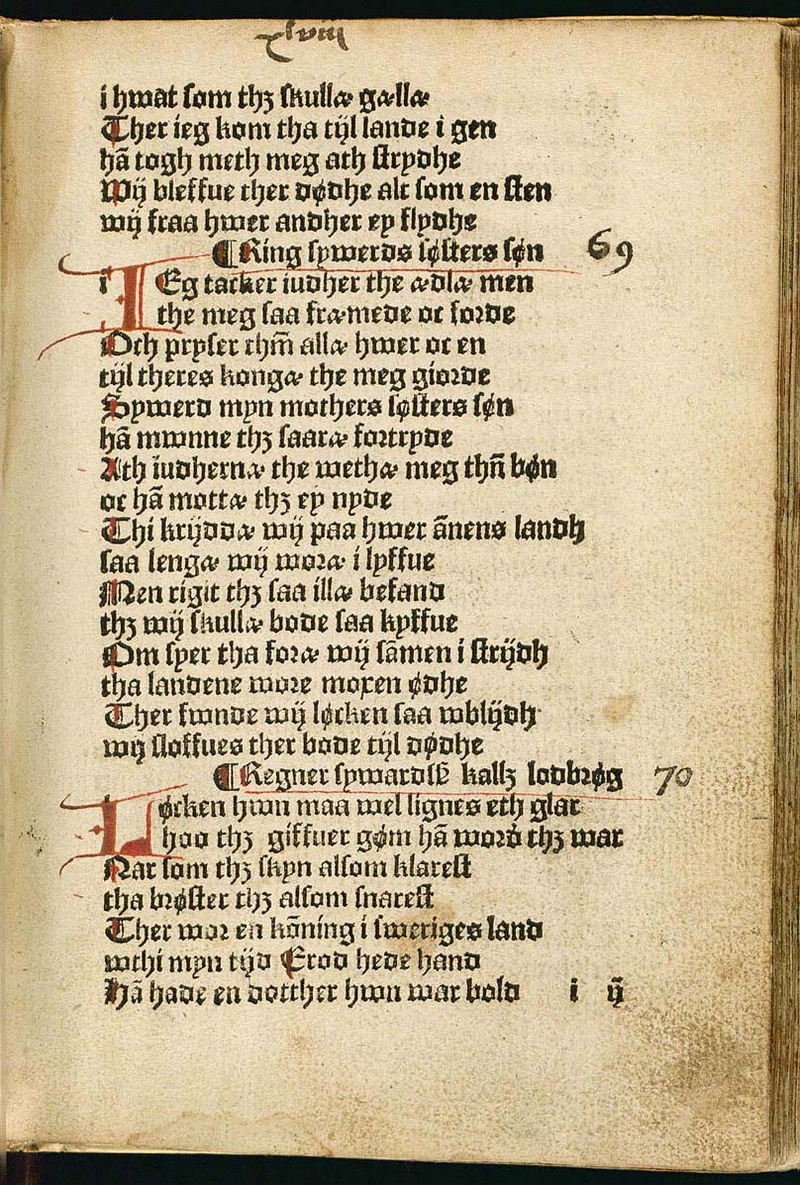 xlviij
i hwat som thꝫ skullæ gællæ
Ther ieg kom tha tijl lande i gen
hā togh meth meg ath strydhe
Wij bleffue ther dødhe alt som en sten
wij fraa hwer andher ey flydhe
¶Ring sywerds søsters søn 69
i IEg tacker iudher the ædlæ men
the meg saa fræmede oc forde
Och pryser thm̄ allæ hwer oc en
tijl theres kongæ the meg giorde
Sywerd myn mothers søsters søn
hā mwnne thꝫ saaræ fortryde
Ath iudhernæ the wethæ meg thn̄ bøn
oc hā mottæ thꝫ ey nyde
Thi krijddæ wij paa hwer ānens landh
saa lengæ wij woræ i lyffue
Men rigit thꝫ saa illæ befand
thꝫ wij skullæ bode saa kyffue
Om syer tha foræ wij sāmen i strijdh
tha landene wore moxen ødhe
Ther fwnde wij løcken saa wblijdh
wij sloffues ther bode tijl dødhe
¶Regner sywardsß kallꝫ lodbrøg 70
Løcken hwn maa wel lignes eth glar
hoo thꝫ giffuer gøm hā worð thꝫ war
Nar som thꝫ skyn alsom klarest
tha brøster thꝫ alsom snarest
Ther wor en kōning i sweriges land
wthi myn tijd Erod hede hand
Hā hade en dotther hwn war bold i ij